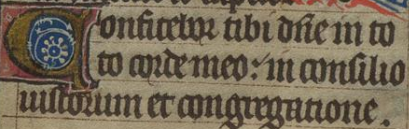 Confitebor tibi dñe in to
to corde meo: in consilio
iustorum et congregatione.